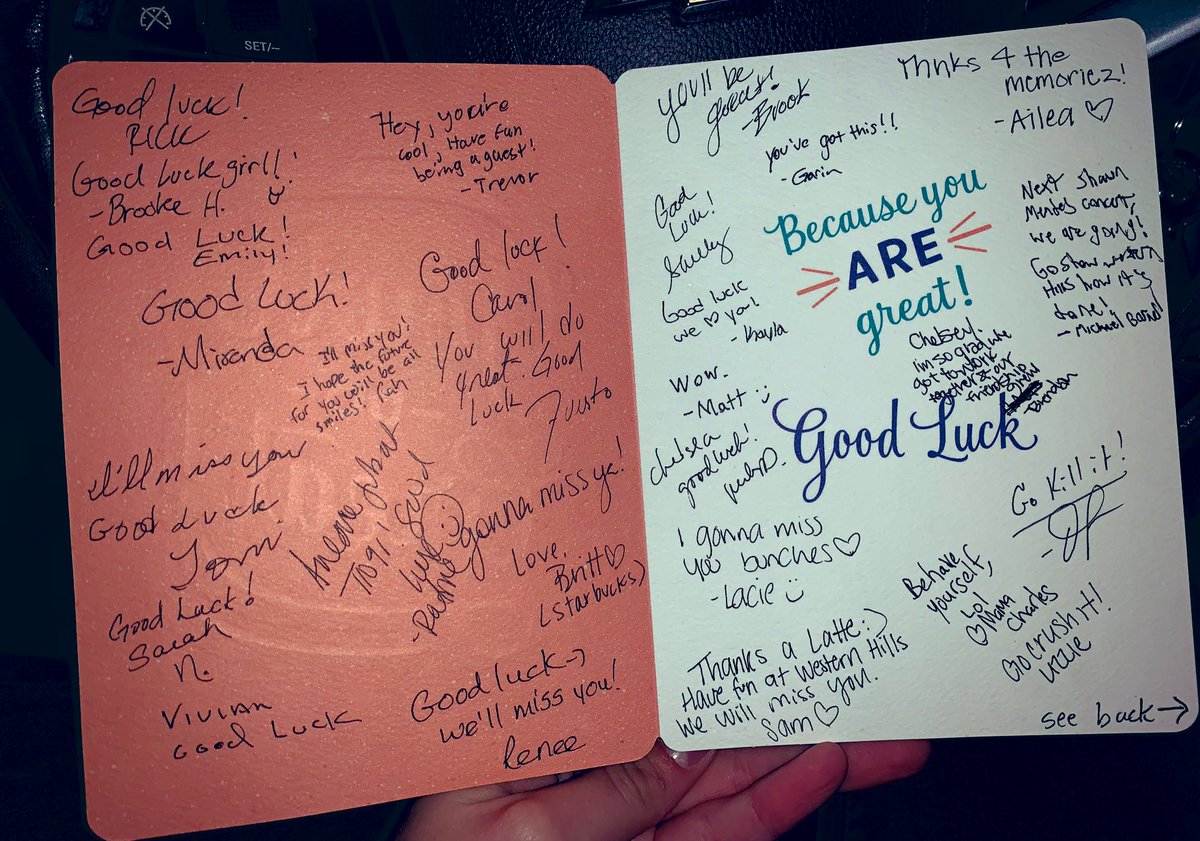 SET/-
Good luck!
RICK
Good Luck girl!!
-Brooke H.
Good Luck!
Emily!
Good Luck!
-Miranda
Hey, you're
cool, Have fun
being a guest!
-Trevor
Good lock!
Carol
I'll miss you!
I hope the future
for you will be all
smiles!
You will do
great. Good
Luck
I'll miss you
Good Luck
Good
Luck
gonna miss ya!
Love,
Britt♡
(Starbucks)
Good Luck!
Sarah
N.
VIVIAN
Good Luck
Good luck→
we'll miss you!
Renee
you'll be
great!
-Brook
Thnks 4 the
memoriez!
-Ailea ♡
you've got this!!
-Garin
Good
Luck!
Good luck
we ♡ you!
-Kayla
Because you
ARE
great!
Next Shawn
Mendes concert,
we are going!
Go show western
Hills how it's
done!
-Michael
Chelsey!
I'm so glad we
got to work
together & our
friendship
Brendan
Wow.
-Matt :)
Chelsea
good luck!
Good Luck
I gonna miss
you bunches♡
-Lacie :)
Go Kill it!
Behave
yourself,
Lol
♡Mama
Charles
Go crush it!
Thanks a Latte :)
Have fun at Western Hills
we will miss you.
Sam♡
see back→